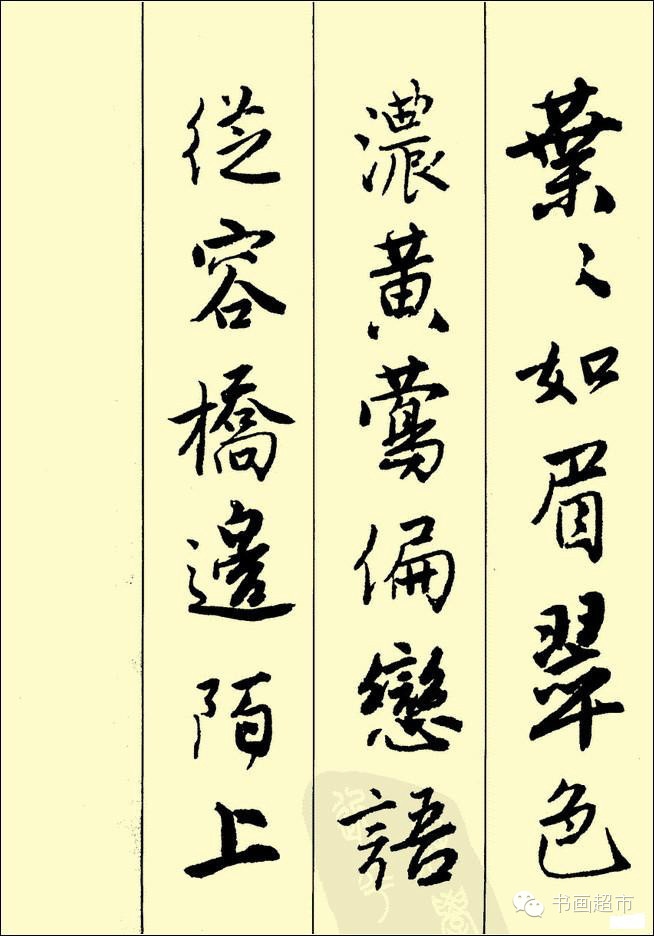 葉〻如眉翠色
濃黄鶯偏戀語
從容橋邊陌上
书画超市